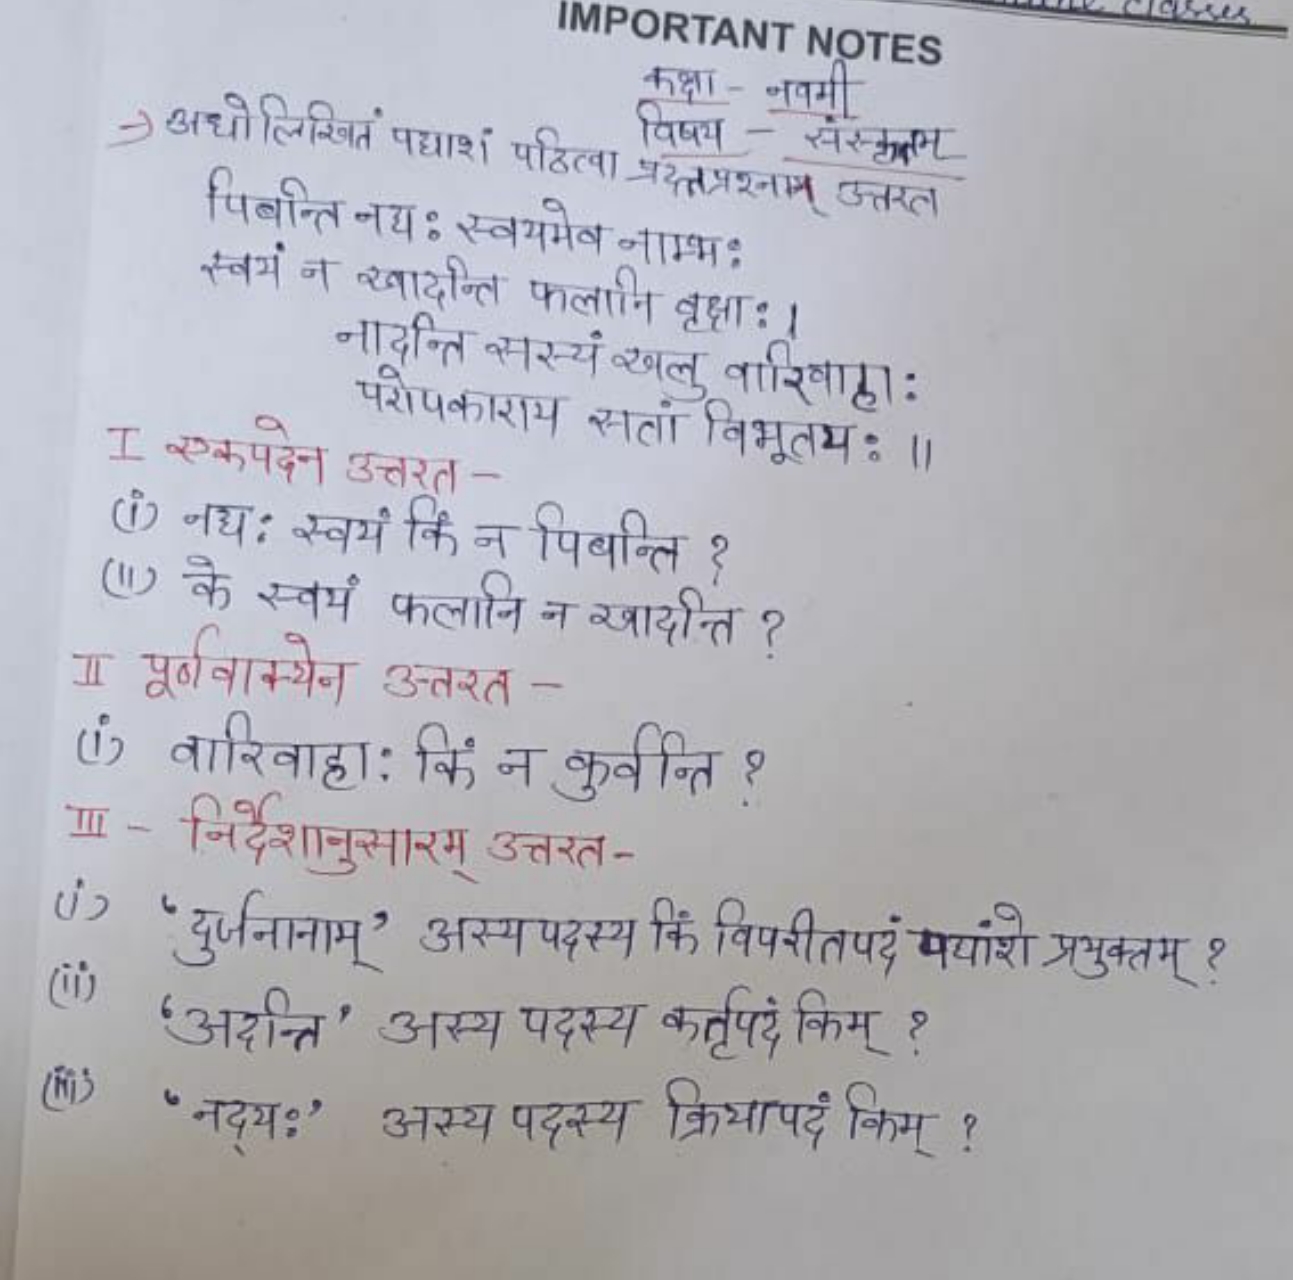 Classes
IMPORTANT NOTES
कक्षा - नवमी
विषय - संस्कृतम
→ अधोलिखितं पद्याशं पठित्वा प्रदत्तप्रश्नाम् उत्तरत
पिबन्ति नद्यः स्वयमेव नाम्भः
स्वयं न खादन्ति फलानि वृक्षाः ।
नादन्ति सस्यं खलु वारिवाहाः
परोपकाराय सतां विभूतयः ॥
I एकपदेन उत्तरत -
(i) नद्यः स्वयं किं न पिबन्ति ?
(ii) के स्वयं फलानि न खादन्ति ?
II पूर्णवाक्येन उत्तरत -
(i) वारिवाहाः किं न कुर्वन्ति ?
III - निर्देशानुसारम् उत्तरत -
(i) 'दुर्जनानाम्' अस्य पदस्य किं विपरीतपदं पद्यांशे प्रयुक्तम् ?
(ii) 'अदन्ति' अस्य पदस्य कर्तृपदं किम् ?
(iii) 'नद्यः' अस्य पदस्य क्रियापदं किम् ?